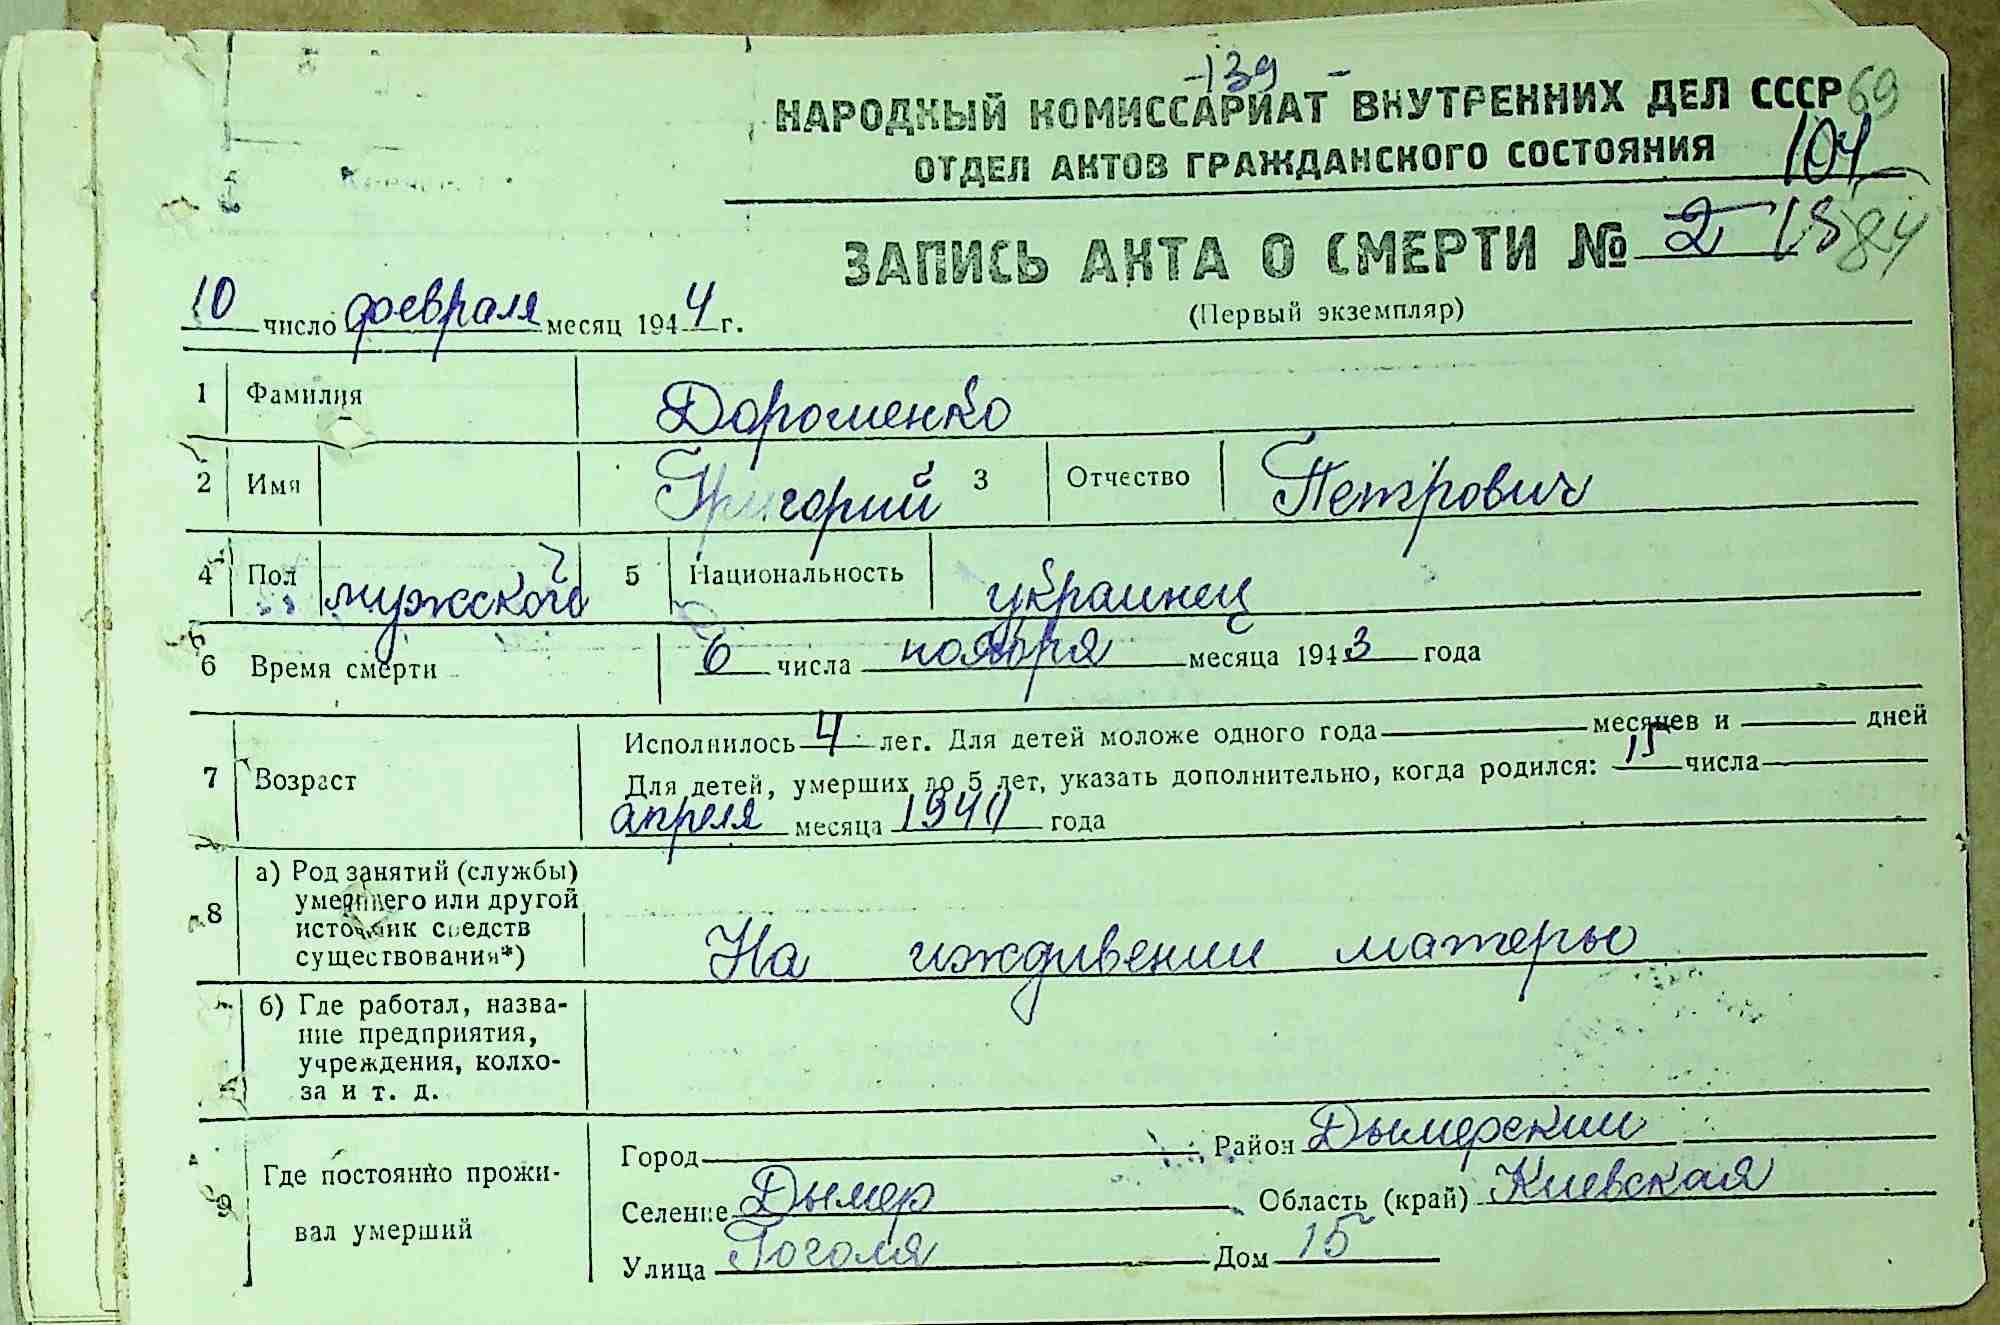 -139-
НАРОДНЫЙ КОМИССАРИАТ ВНУТРЕННИХ ДЕЛ СССР 69
ОТДЕЛ АКТОВ ГРАЖДАНСКОГО СОСТОЯНИЯ 104
ЗАПИСЬ АКТА О СМЕРТИ № 2 15 84
(Первый экземпляр)
10 число февраля месяц 1944 г.
1 Фамилия Дороменко
2 Имя Григорий 3 Отчество Петрович
4 Пол мужской 5 Национальность украинец
6 Время смерти 6 числа ноября месяца 1943 года
7 Возраст
Исполнилось 4 лет. Для детей моложе одного года месяцев и дней
Для детей, умерших до 5 лет, указать дополнительно, когда родился: 15 числа
апреля месяца года
8 а) Род занятий (службы)
умершего или другой
источник средств
существования*)
На иждивении матерью
б) Где работал, назва-
ние предприятия,
учреждения, колхо-
за и т. д.
9 Где постоянно прожи-
вал умерший
Город Район Дымерский
Селение Дымер Область (край) Киевская
Улица Гоголя Дом 15